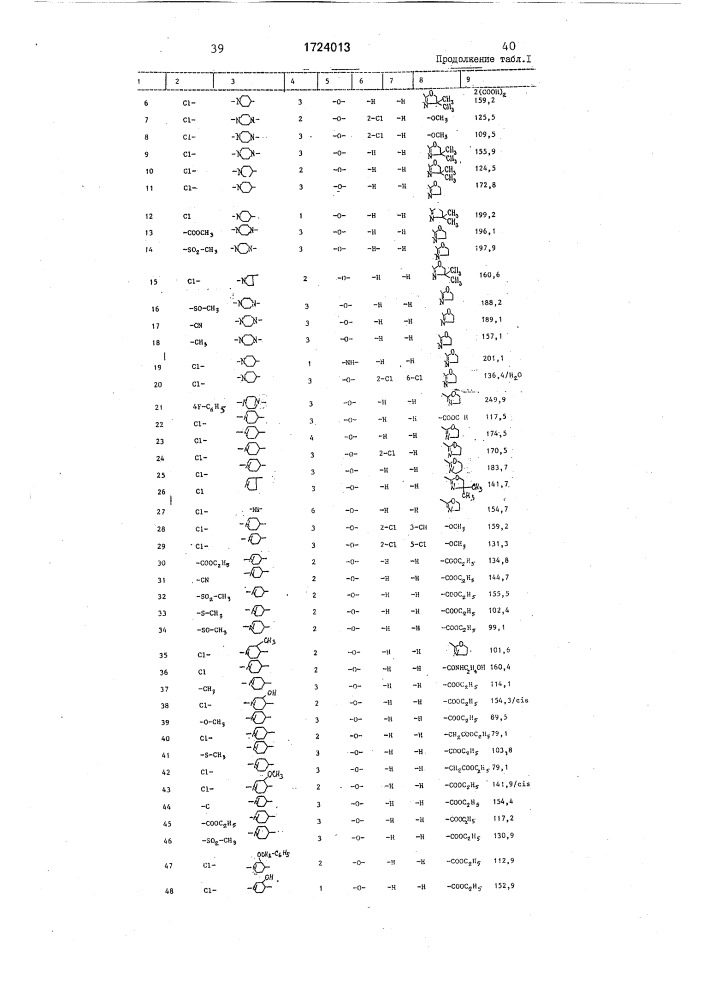 39 1724013 40
Продолжение табл.I
1 2 3 4 5 6 7 8 9
2(COOH)2
6 Cl- -N- 3 -O- -H -H O N CH3 CH3 159,2
7 Cl- -N N- 2 -O- 2-Cl -H -OCH3 125,5
8 Cl- -N N- 3 -O- 2-Cl -H -OCH3 109,5
9 Cl- -N N- 3 -O- -H -H O N CH3 CH3 155,9
10 Cl- -N- 2 -O- -H -H O N CH3 CH3 124,5
11 Cl- -N- 3 -O- -H -H O N 172,8
12 Cl -N- 1 -O- -H -H O N CH3 CH3 199,2
13 -COOCH3 -N N- 3 -O- -H -H O N 196,1
14 -SO2-CH3 -N N- 3 -O- -H- -H O N 197,9
15 Cl- -N 2 -O- -H -H O N CH3 CH3 160,6
16 -SO-CH3 -N N- 3 -O- -H -H O N 188,2
17 -CN -N N- 3 -O- -H -H O N 189,1
18 -CH3 -N N- 3 -O- -H -H O N 157,1
19 Cl- -N- 1 -NH- -H -H O N 201,1
20 Cl- -N- 3 -O- 2-Cl 6-Cl O N 136,4/H2O
21 4F-C6H5 -N N- 3 -O- -H -H O N 249,9
22 Cl- 3 -O- -H -H -COOC H 117,5
23 Cl- 4 -O- -H -H O N 174,5
24 Cl- 3 -O- 2-Cl -H O N 170,5
25 Cl- 3 -O- -H -H O N 183,7
26 Cl 3 -O- -H -H O N CH3 CH3 141,7
27 Cl- -HN- 6 -O- -H -H O N 154,7
28 Cl- 3 -O- 2-Cl 3-CH -OCH3 159,2
29 Cl- 3 -O- 2-Cl 5-Cl -OCH3 131,3
30 -COOC2H5 2 -O- -H -H -COOC2H5 134,8
31 -CN 2 -O- -H -H -COOC2H5 144,7
32 -SO2-CH3 2 -O- -H -H -COOC2H5 155,5
33 -S-CH3 2 -O- -H -H -COOC2H5 102,4
34 -SO-CH3 2 -O- -H -H -COOC2H5 99,1
35 Cl- CH3 2 -O- -H -H O N 101,6
36 Cl 2 -O- -H -H -CONHC2H4OH 160,4
37 -CH3 3 -O- -H -H -COOC2H5 114,1
38 Cl- OH 2 -O- -H -H -COOC2H5 154,3/cis
39 -O-CH3 3 -O- -H -H -COOC2H5 89,5
40 Cl- 2 -O- -H -H -CH2COOC2H5 79,1
41 -S-CH3 3 -O- -H -H -COOC2H5 103,8
42 Cl- 3 -O- -H -H -CH2COOC2H5 79,1
43 Cl- OCH3 3 -O- -H -H -COOC2H5 141,9/cis
44 -C 3 -O- -H -H -COOC2H5 154,4
45 -COOC2H5 3 -O- -H -H -COOC2H5 117,2
46 -SO2-CH3 3 -O- -H -H -COOC2H5 130,9
47 Cl- OCH2-C6H5 2 -O- -H -H -COOC2H5 112,9
48 Cl- OH 1 -O- -H -H -COOC2H5 152,9